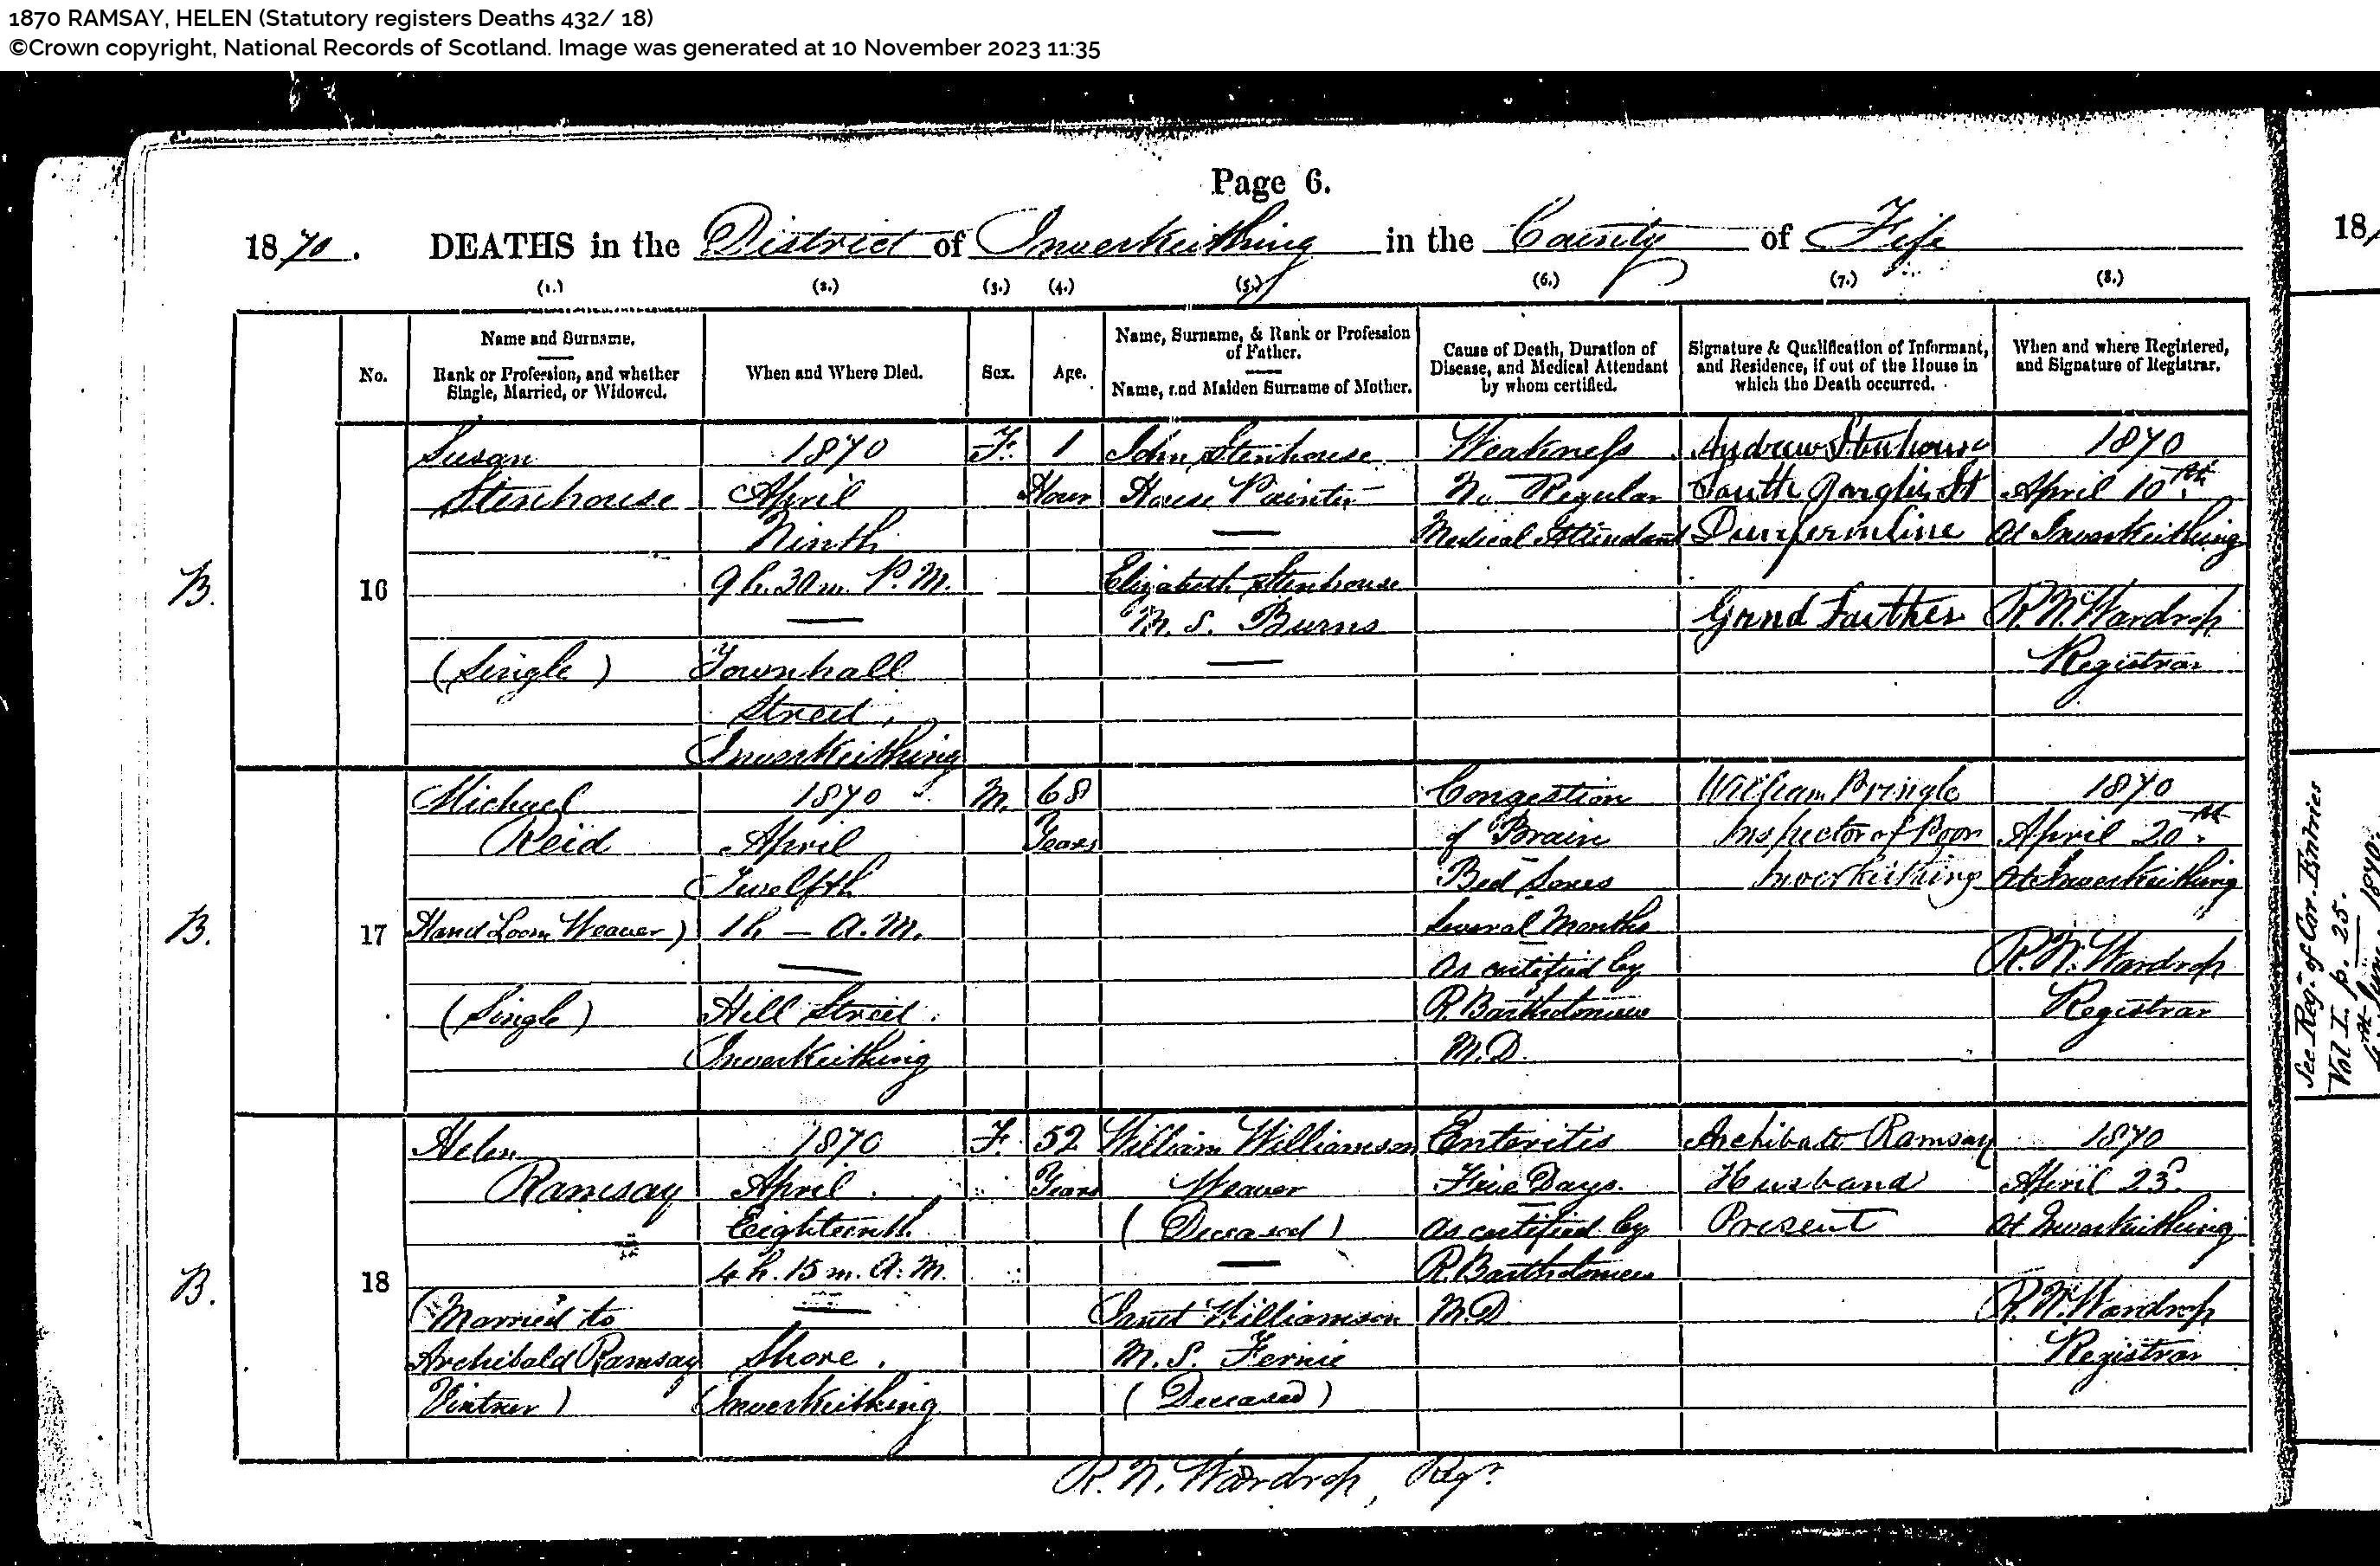 1870 RAMSAY, HELEN (Statutory registers Deaths 432/ 18)
©Crown copyright, National Records of Scotland. Image was generated at 10 November 2023 11:35
Page 6.
1870. DEATHS in the District of Inverkeithing in the County of Fife
(1.) (2.) (3.) (4.) (5.) (6.) (7.) (8.)
No.
Name and Surname.
Rank or Profession, and whether
Single, Married, or Widowed.
When and Where Died.
Sex.
Age.
Name, Surname, & Rank or Profession
of Father.
Name, and Maiden Surname of Mother.
Cause of Death, Duration of
Disease, and Medical Attendant
by whom certified.
Signature & Qualification of Informant,
and Residence, if out of the House in
which the Death occurred.
When and where Registered,
and Signature of Registrar.
B.
16
Susan
Stenhouse
(Single)
1870
April
Ninth
9 h. 30 m. P.M.
Townhall
Street,
Inverkeithing
F.
1
Hour
John Stenhouse
House Painter
Elizabeth Stenhouse
M. S. Burns
Weakness
No Regular
Medical Attendant
Andrew Stenhouse
South St
Dunfermline
Grand Faither
1870
April 10th
At Inverkeithing
R. N. Wardrop
Registrar
B.
17
Michael
Reid
Hand Loom Weaver)
(Single)
1870
April
Twelfth
1 h — A.M.
Hill Street
Inverkeithing
M.
68
Years
Congestion
of Brain
Bed Sores
Several Months
As certified by
R. Bartholomew
M.D.
William Pringle
Inspector of Poor
Inverkeithing
1870
April 20th
At Inverkeithing
R. N. Wardrop
Registrar
B.
18
Helen
Ramsay
(Married to
Archibald Ramsay
Vintner)
1870
April
Eighteenth
4 h. 15 m. A.M.
Shore,
Inverkeithing
F.
52
Years
William Williamson
Weaver
(Deceased)
Janet Williamson
M. S. Fernie
(Deceased)
Enteritis
Five Days.
As certified by
R. Bartholomew
M.D.
Archibald Ramsay
Husband
Present
1870
April 23d
At Inverkeithing
R. N. Wardrop
Registrar
R. N. Wardrop, Regr.
18
See Reg. of Cor. Entries
Vol I. p. 25.